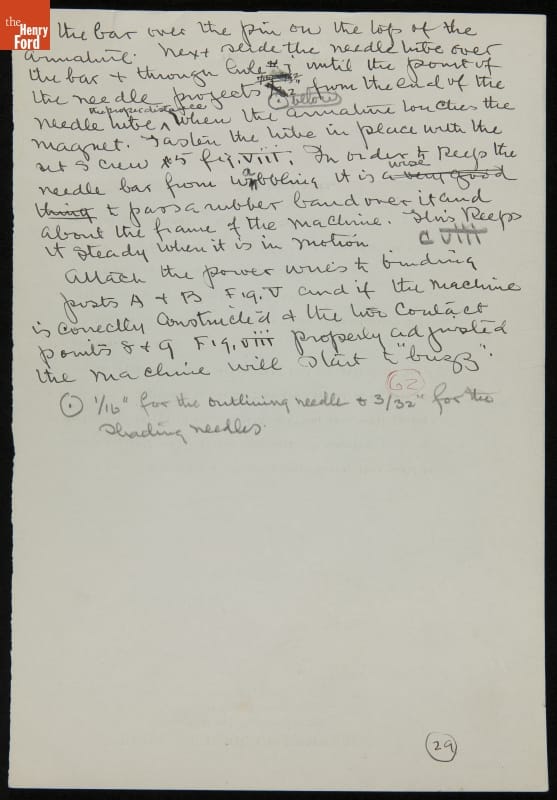 the Henry Ford
the bar over the pin on the top of the
armature. Next slide the needle tube over
the bar & through tube until the point of
the needle projects the proper distance from the end of the
⊙ below
needle tube, when the armature touches the
magnet. Fasten the tube in place with the
set screw #5 Fig. VIII. In order to keep the
needle bar from wabbling it is a very good wise
thing to pass a rubber band over it and
about the frame of the machine. This keeps
it steady when it is in motion C VIII
Attach the power wires to binding
posts A & B Fig. V and if the machine
is correctly constructed & the two contact
points 8 & 9 Fig. VIII properly adjusted
the machine will start to "buzz".
62
⊙ 1/16" for the outlining needle & 3/32" for the
shading needles.
29